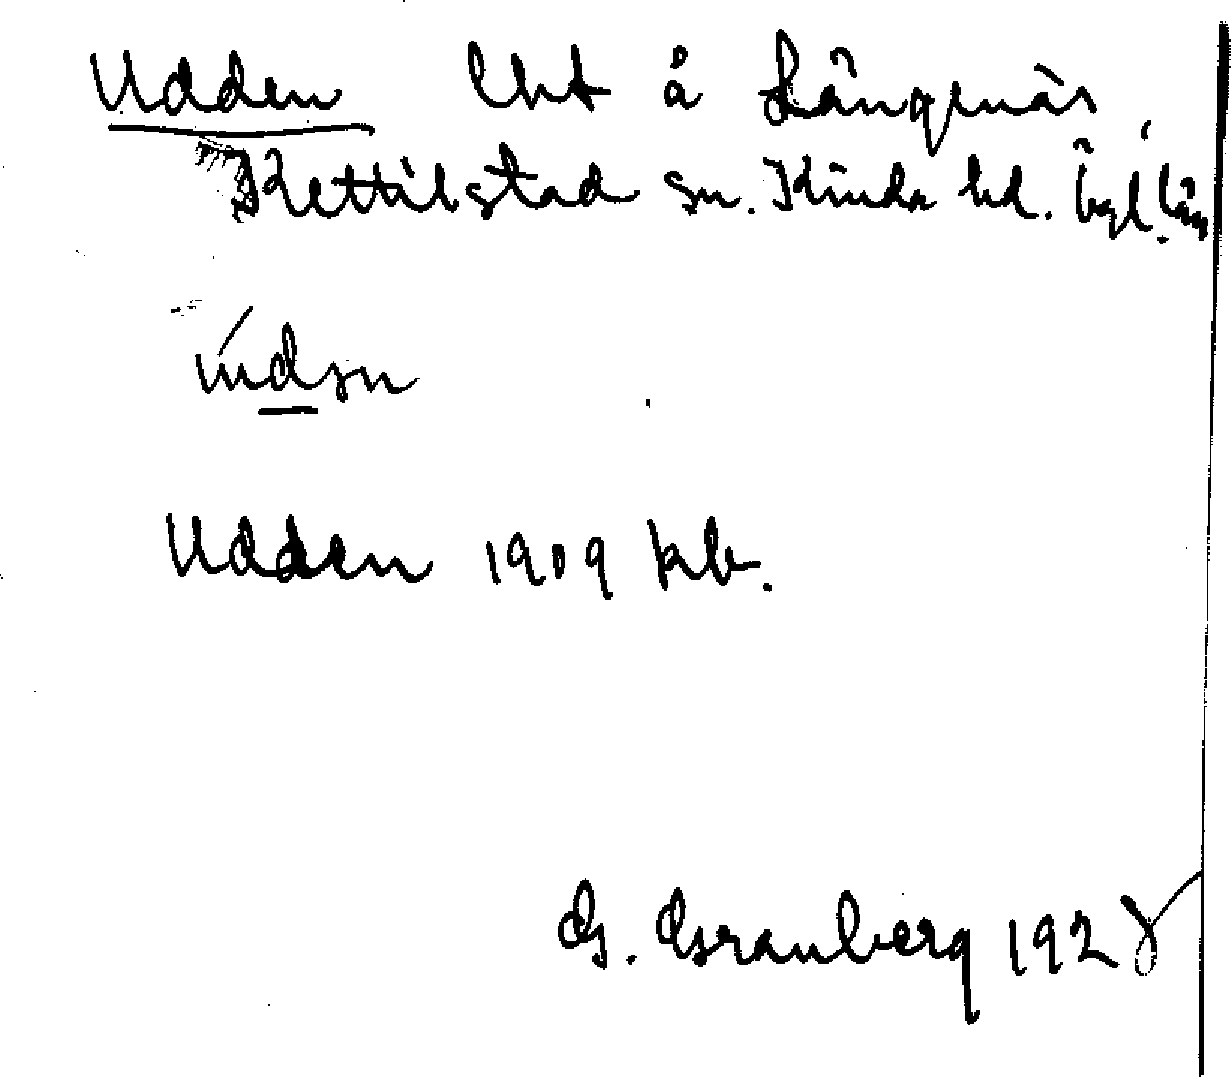 Udden lht å Långenäs
Kettilstad sn. Kinda hd. Ögl. län
Udden 1909 kb.
G. Granberg 1928